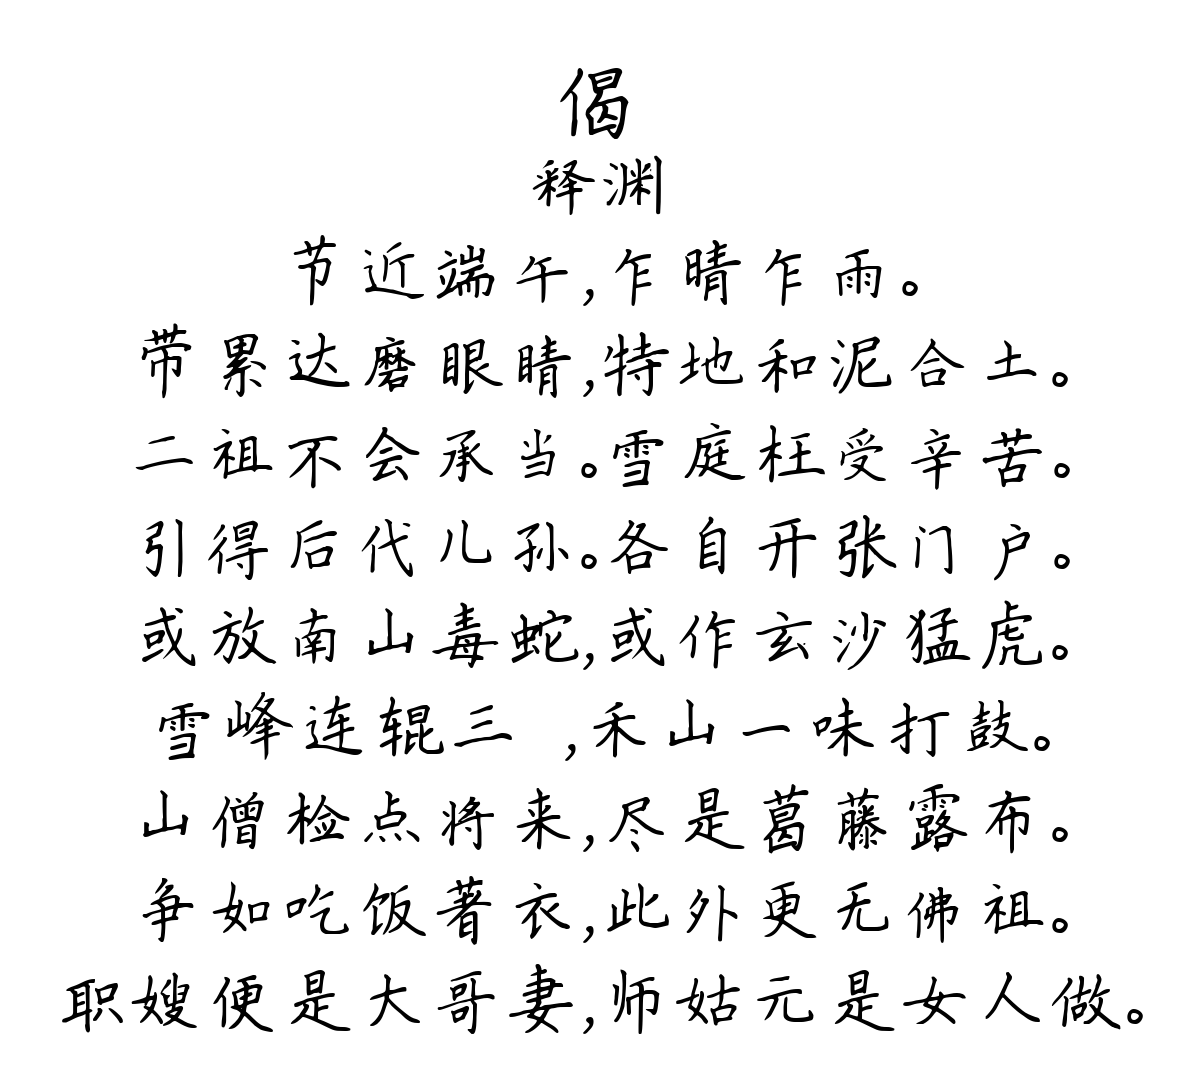 偈
释渊
节近端午,乍晴乍雨。
带累达磨眼睛,特地和泥合土。
二祖不会承当。雪庭枉受辛苦。
引得后代儿孙。各自开张门户。
或放南山毒蛇,或作玄沙猛虎。
雪峰连辊三 ,禾山一味打鼓。
山僧检点将来,尽是葛藤露布。
争如吃饭著衣,此外更无佛祖。
职嫂便是大哥妻,师姑元是女人做。